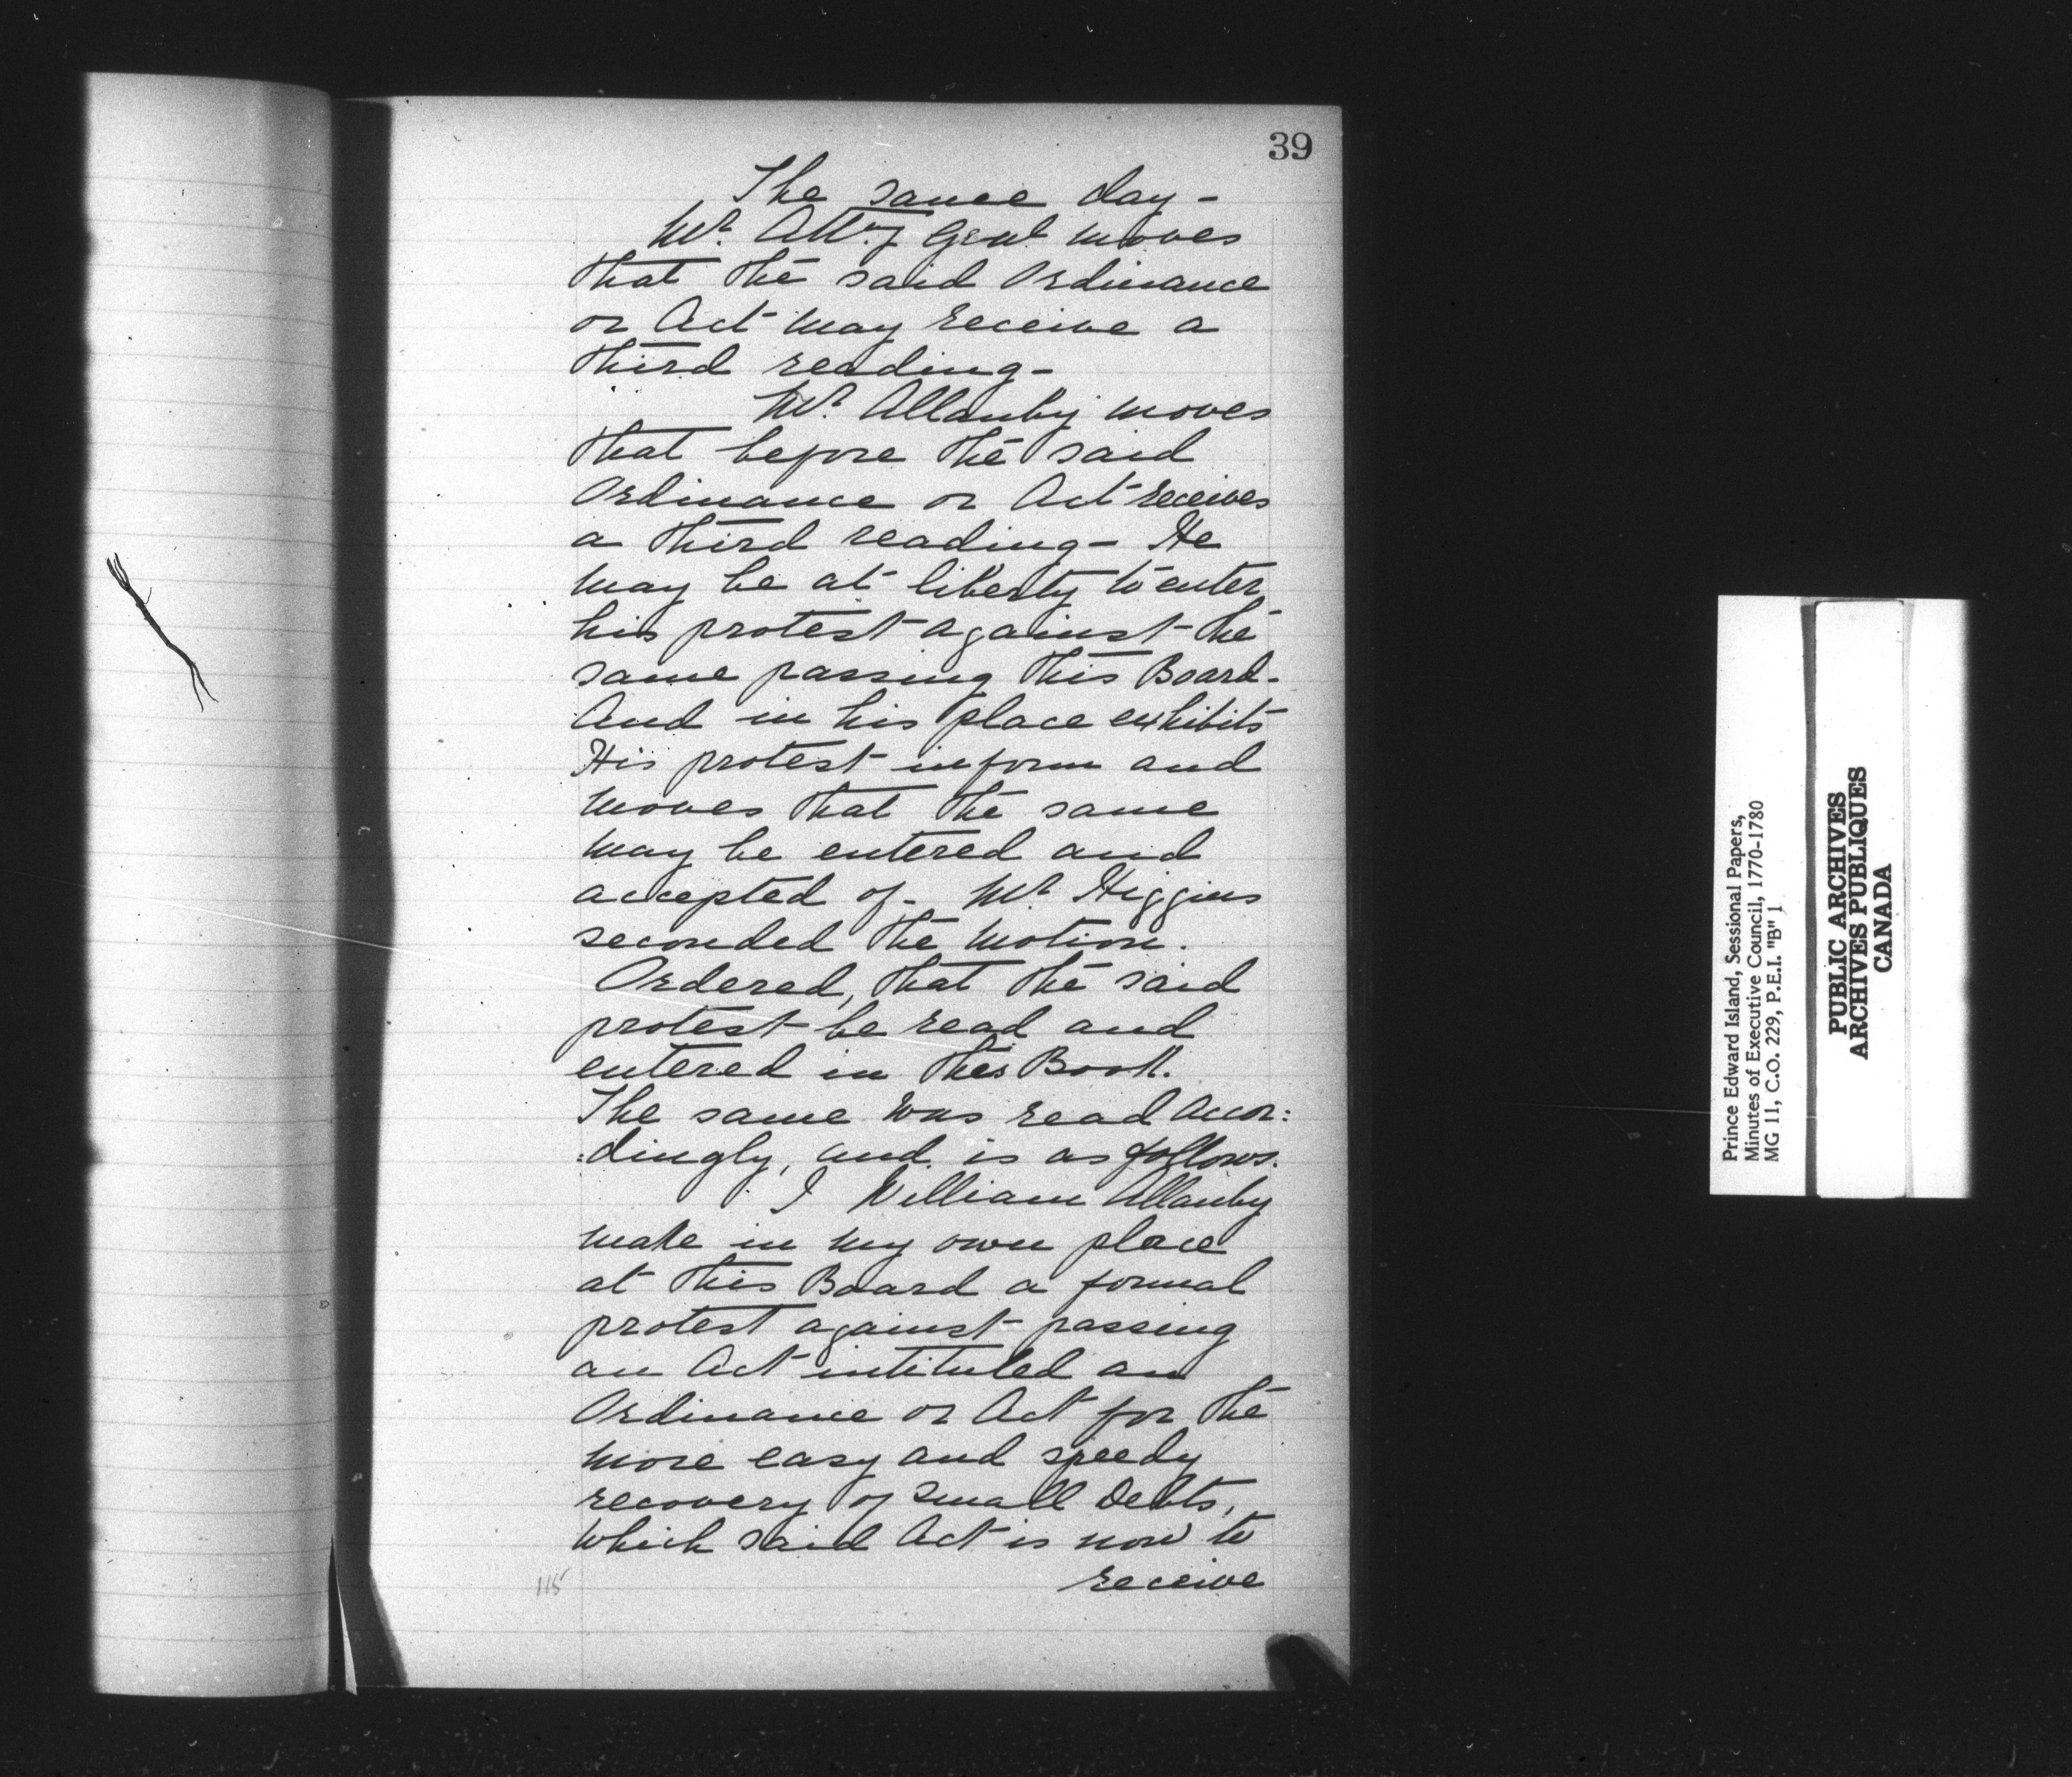 39
The same day -
Mr. Atty Genl moves
that the said Ordinance
or Act may receive a
third reading -
Mr. Allanby moves
that before the said
Ordinance or Act receives
a third reading - He
may be at liberty to enter
his protest against the
same passing this Board -
And in his place exhibits
His protest in form and
moves that the same
may be entered and
accepted of - Mr Higgins
seconded the motion.
Ordered, that the said
protest be read and
entered in this Book.
The same was read accor:
:dingly, and is as follows.
I William Allanby
make in my own place
at this Board a formal
protest against passing
an Act intituled an
Ordinance or Act for the
more easy and speedy
recovery of small Debts,
which said Act is now to
receive
115
Prince Edward Island, Sessional Papers,
Minutes of Executive Council, 1770-1780
MG 11, C.O. 229, P.E.I. "B" 1
PUBLIC ARCHIVES
ARCHIVES PUBLIQUES
CANADA